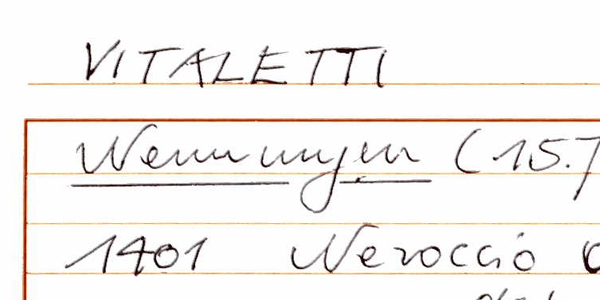 VITALETTI
Nennungen (15.)
1401 Neroccio